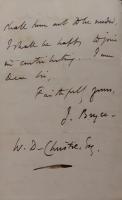 shall turn out to be needed,
I shall be happy to join
in contributing. I am
Dear Sir,
Faithfully yours,
J. Bryce
W. D. Christie, Esq.